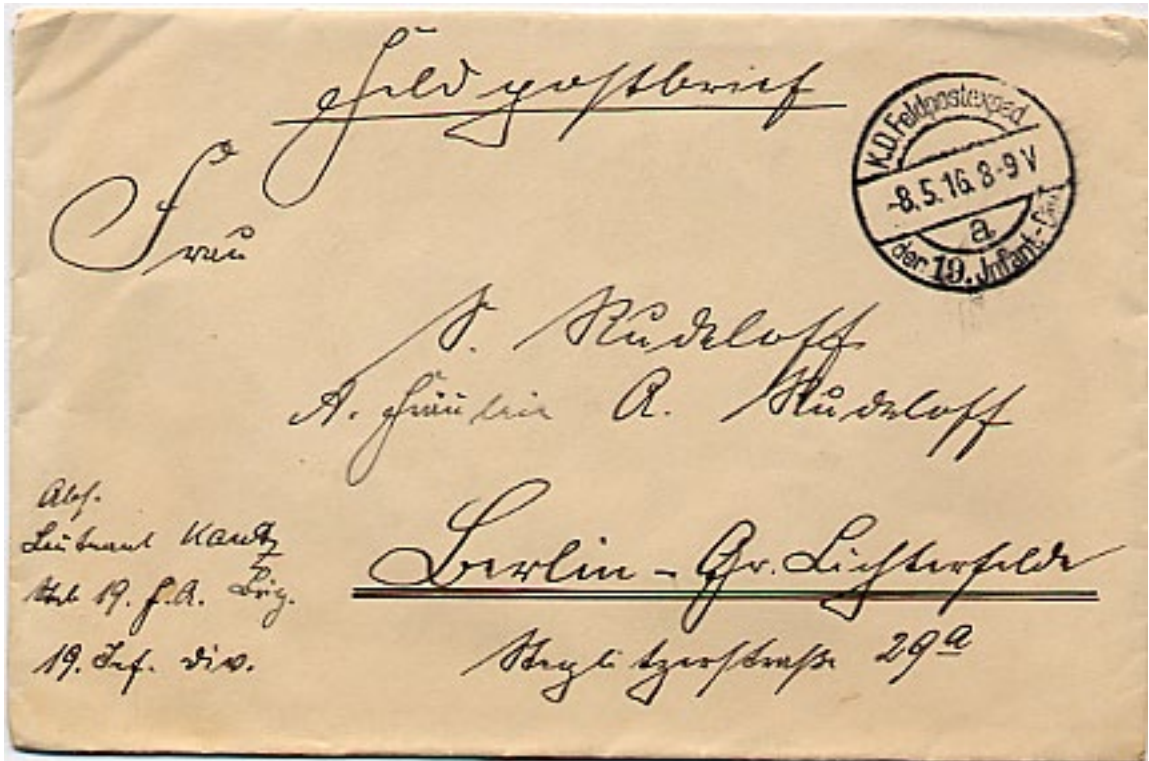 Feldpostbrief
K.D. Feldpostexped.
-8.5.16. 8-9 V
a
der 19. Infant.-Div.
Frau
S. Rudeloff
A. Fräulein A. Rudeloff
Berlin - Gr. Lichterfelde
Steglitzerstraße 29a
Abs.
Leutnant
Stab 19. F.A. Brig.
19. Inf. Div.